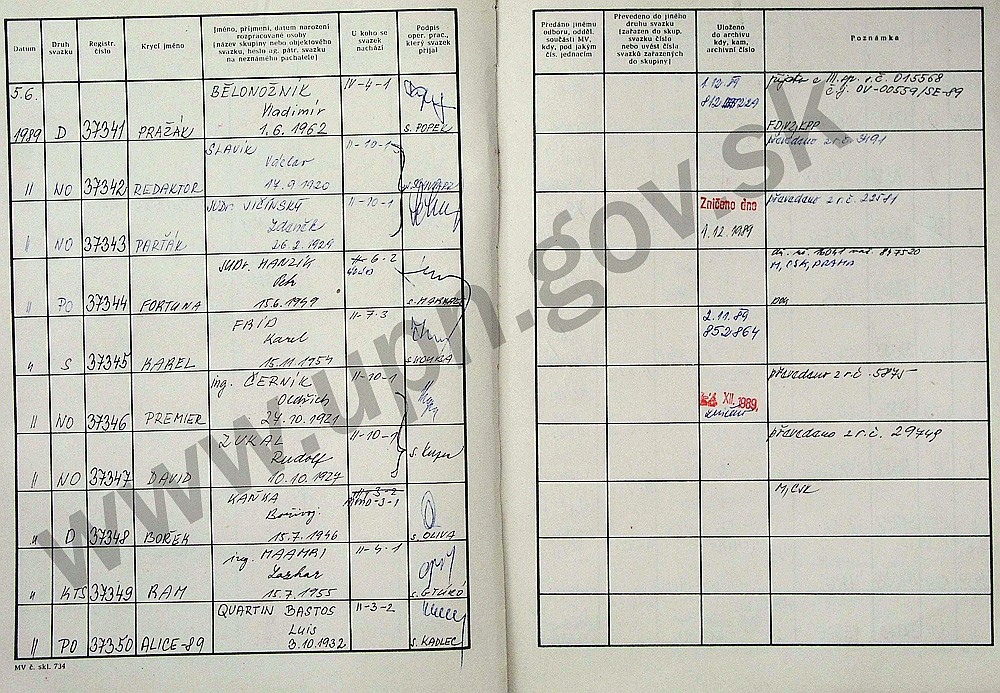 Datum
Druh svazku
Registr. číslo
Krycí jméno
Jméno, příjmení, datum narození
rozpracované osoby
(název skupiny nebo objektového
svazku, heslo ag. pátr. svazku
na neznámého pachatele)
U koho se
svazek
nachází
Podpis
oper. prac.,
který svazek
přijal
Předáno jinému
odboru, odděl.
součásti MV,
kdy, pod jakým
čís. jednacím
Převedeno do jiného
druhu svazku
(zařazen do skup.
svazku číslo
nebo uvést čísla
svazků zařazených
do skupiny)
Uloženo
do archivu
kdy, kam,
archivní číslo
Poznámka
5.6.
1989 D 37341 PRAŽÁK
BĚLONOŽNÍK
Vladimír
1.6.1962
IV-4-1
s. POPEK
1.12.89
z III. sp. r.č. 015568
č.j. OV-00559/SE-89
" NO 37342 REDAKTOR
SLAVÍK
Václav
17.9.1920
II-10-1
převedeno z r.č. 3491
" NO 37343 PARŤÁK
JUDr. VIČÍNSKÝ
Zdeněk
26.2.1924
II-10-1
Zničeno dne
1.12.1989
převedeno z r.č.
" PO 37344 FORTUNA
JUDr. HANZÍK
Petr
15.6.1949
II-6-2
M, ČSK, PRAHA
" S 37345 KAREL
FRÍD
Karel
15.11.1954
II-7-3
2.11.89
852864
" NO 37346 PREMIER
ing. ČERNÍK
Oldřich
27.10.1921
II-10-1
XII. 1989
převedeno z r.č. 5875
" NO 37347 DAVID
ZUKAL
Rudolf
10.10.1927
II-10-1
převedeno z r.č. 29749
" D 37348 BOŘEK
KAŇKA
Bořivoj
15.7.1946
s. OLIVA
M, ČSK
" KTS 37349 RAM
ing. MAAMRI
Lazhar
15.7.1955
II-4-1
" PO 37350 ALICE-89
QUARTIN BASTOS
Luis
3.10.1932
II-3-2
s. KADLEC
MV č. skl. 734
www.upn.gov.sk